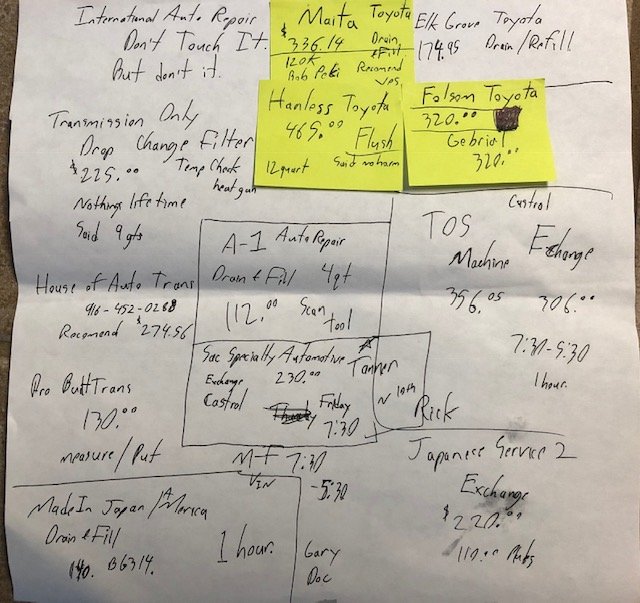 International Auto Repair
Don't Touch It.
But don't it.
Maita Toyota
$336.14 Drain
& Fill
120K Recomend
Bob Peki yes.
Elk Grove Toyota
174.95 Drain/Refill
Hanless Toyota
465.00 Flush
12 quart Said no harm
Folsom Toyota
320.00
Gebriel
320.00
Transmission Only
Drop Change Filter
$225.00 Temp Check
heat gun
Nothings lifetime
Said 9 qts
A-1 Auto Repair
Drain & Fill 4qt
112.00 Scan
tool
Castrol
TOS
Machine Exchange
356.05 306.00
7:30-5:30
1 hour.
Rick
House of Auto Trans
916-452-0288
Recomend $274.56
Sac Specialty Automotive
Tanner
Exchange 230.00
Castrol
Friday
7:30
N 10th
Pro Built Trans
130.00
measure/Put
M-F 7:30
VIN
-5:30
Gary
Doc
Japanese Service 2
Exchange
$220.00
110.00
Made In Japan/America
Drain & Fill
140. BG314.
1 hour.